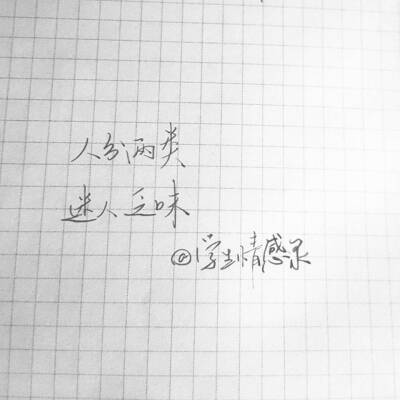 人分两类
迷人乏味
@学生情感录